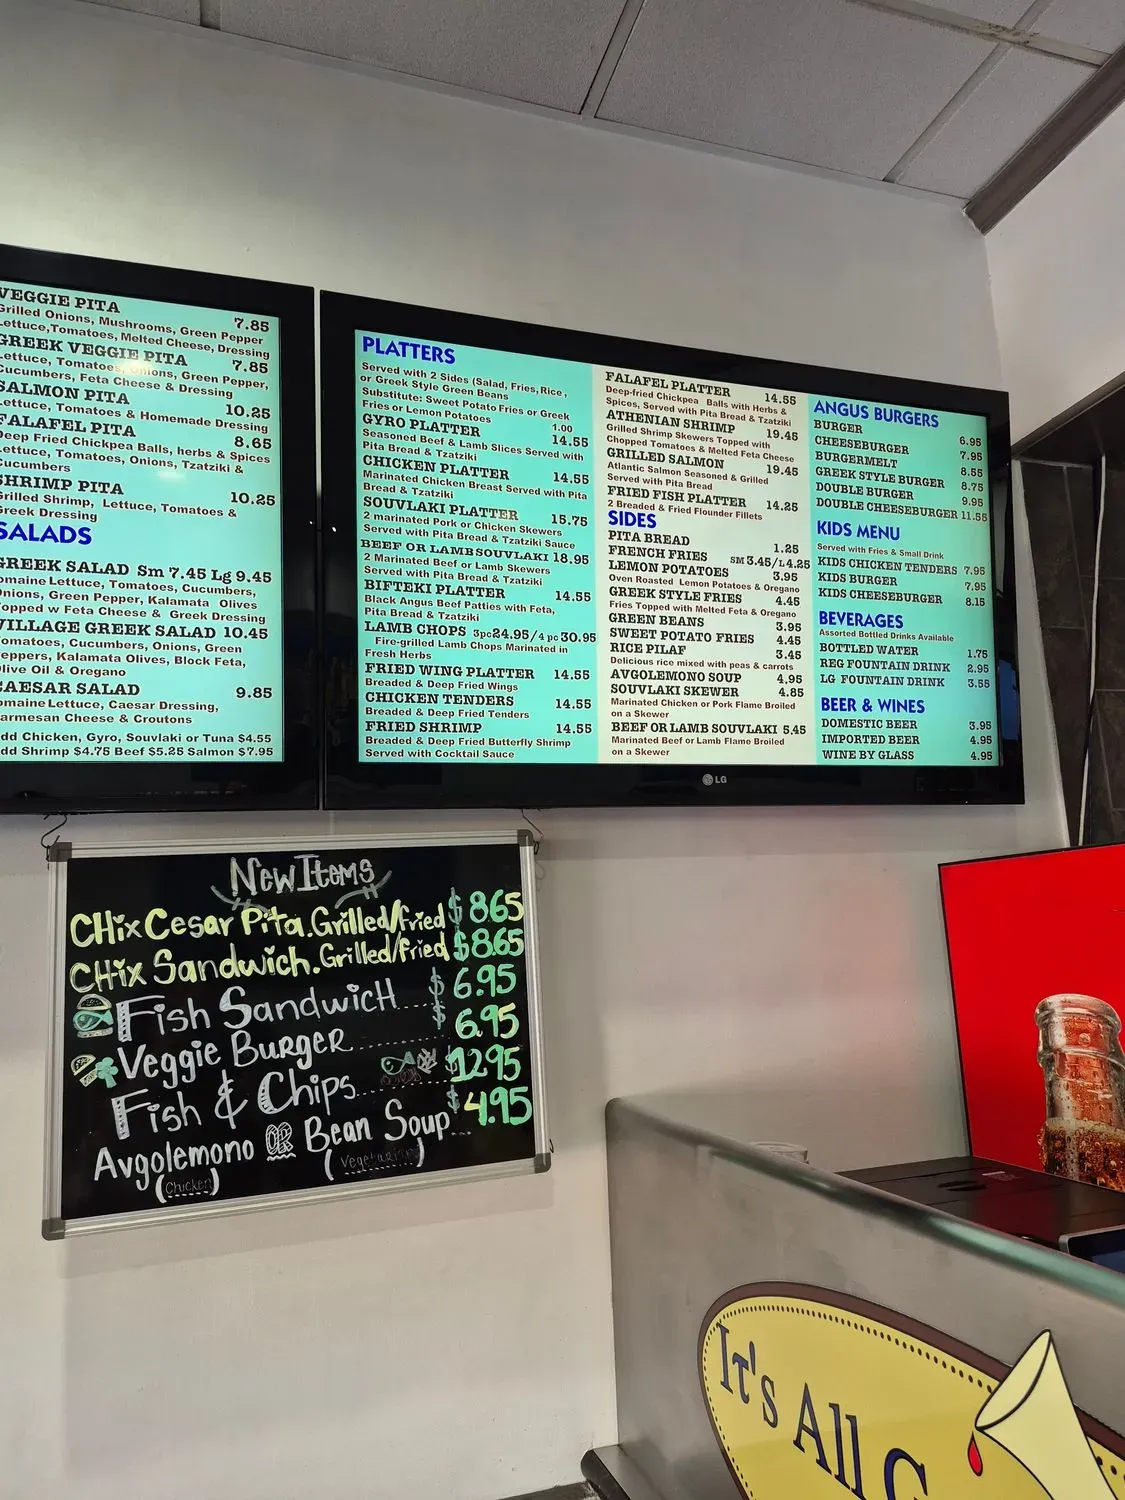 VEGGIE PITA 7.85
Grilled Onions, Mushrooms, Green Pepper
Lettuce, Tomatoes, Melted Cheese, Dressing
GREEK VEGGIE PITA 7.85
Lettuce, Tomatoes, Onions, Green Pepper,
Cucumbers, Feta Cheese & Dressing
SALMON PITA 10.25
Lettuce, Tomatoes & Homemade Dressing
FALAFEL PITA 8.65
Deep Fried Chickpea Balls, herbs & Spices
Lettuce, Tomatoes, Onions, Tzatziki &
Cucumbers
SHRIMP PITA 10.25
Grilled Shrimp, Lettuce, Tomatoes &
Greek Dressing
SALADS
GREEK SALAD Sm 7.45 Lg 9.45
omaine Lettuce, Tomatoes, Cucumbers,
Onions, Green Pepper, Kalamata Olives
Topped w Feta Cheese & Greek Dressing
VILLAGE GREEK SALAD 10.45
Tomatoes, Cucumbers, Onions, Green
eppers, Kalamata Olives, Block Feta,
Olive Oil & Oregano
CAESAR SALAD 9.85
omaine Lettuce, Caesar Dressing,
armesan Cheese & Croutons
dd Chicken, Gyro, Souvlaki or Tuna $4.55
dd Shrimp $4.75 Beef $5.25 Salmon $7.95
PLATTERS
Served with 2 Sides (Salad, Fries, Rice,
or Greek Style Green Beans
Substitute: Sweet Potato Fries or Greek
Fries or Lemon Potatoes 1.00
GYRO PLATTER 14.55
Seasoned Beef & Lamb Slices Served with
Pita Bread & Tzatziki
CHICKEN PLATTER 14.55
Marinated Chicken Breast Served with Pita
Bread & Tzatziki
SOUVLAKI PLATTER 15.75
2 marinated Pork or Chicken Skewers
Served with Pita Bread & Tzatziki Sauce
BEEF OR LAMB SOUVLAKI 18.95
2 Marinated Beef or Lamb Skewers
Served with Pita Bread & Tzatziki
BIFTEKI PLATTER 14.55
Black Angus Beef Patties with Feta,
Pita Bread & Tzatziki
LAMB CHOPS 3pc 24.95/4 pc 30.95
Fire-grilled Lamb Chops Marinated in
Fresh Herbs
FRIED WING PLATTER 14.55
Breaded & Deep Fried Wings
CHICKEN TENDERS 14.55
Breaded & Deep Fried Tenders
FRIED SHRIMP 14.55
Breaded & Deep Fried Butterfly Shrimp
Served with Cocktail Sauce
FALAFEL PLATTER 14.55
Deep-fried Chickpea Balls with Herbs &
Spices, Served with Pita Bread & Tzatziki
ATHENIAN SHRIMP 19.45
Grilled Shrimp Skewers Topped with
Chopped Tomatoes & Melted Feta Cheese
GRILLED SALMON 19.45
Atlantic Salmon Seasoned & Grilled
Served with Pita Bread
FRIED FISH PLATTER 14.25
2 Breaded & Fried Flounder Fillets
SIDES
PITA BREAD 1.25
FRENCH FRIES SM 3.45/L 4.25
LEMON POTATOES 3.95
Oven Roasted Lemon Potatoes & Oregano
GREEK STYLE FRIES 4.45
Fries Topped with Melted Feta & Oregano
GREEN BEANS 3.95
SWEET POTATO FRIES 4.45
RICE PILAF 3.45
Delicious rice mixed with peas & carrots
AVGOLEMONO SOUP 4.95
SOUVLAKI SKEWER 4.85
Marinated Chicken or Pork Flame Broiled
on a Skewer
BEEF OR LAMB SOUVLAKI 5.45
Marinated Beef or Lamb Flame Broiled
on a Skewer
ANGUS BURGERS
BURGER 6.95
CHEESEBURGER 7.95
BURGERMELT 8.55
GREEK STYLE BURGER 8.75
DOUBLE BURGER 9.95
DOUBLE CHEESEBURGER 11.55
KIDS MENU
Served with Fries & Small Drink
KIDS CHICKEN TENDERS 7.95
KIDS BURGER 7.95
KIDS CHEESEBURGER 8.15
BEVERAGES
Assorted Bottled Drinks Available
BOTTLED WATER 1.75
REG FOUNTAIN DRINK 2.95
LG FOUNTAIN DRINK 3.55
BEER & WINES
DOMESTIC BEER 3.95
IMPORTED BEER 4.95
WINE BY GLASS 4.95
LG
New Items
CHix Cesar Pita. Grilled/fried $ 8.65
CHix Sandwich. Grilled/fried $8.65
Fish Sandwich $ 6.95
Veggie Burger $ 6.95
Fish & Chips $12.95
Avgolemono OR Bean Soup $4.95
(Chicken) (Vegetarian)
It's All G